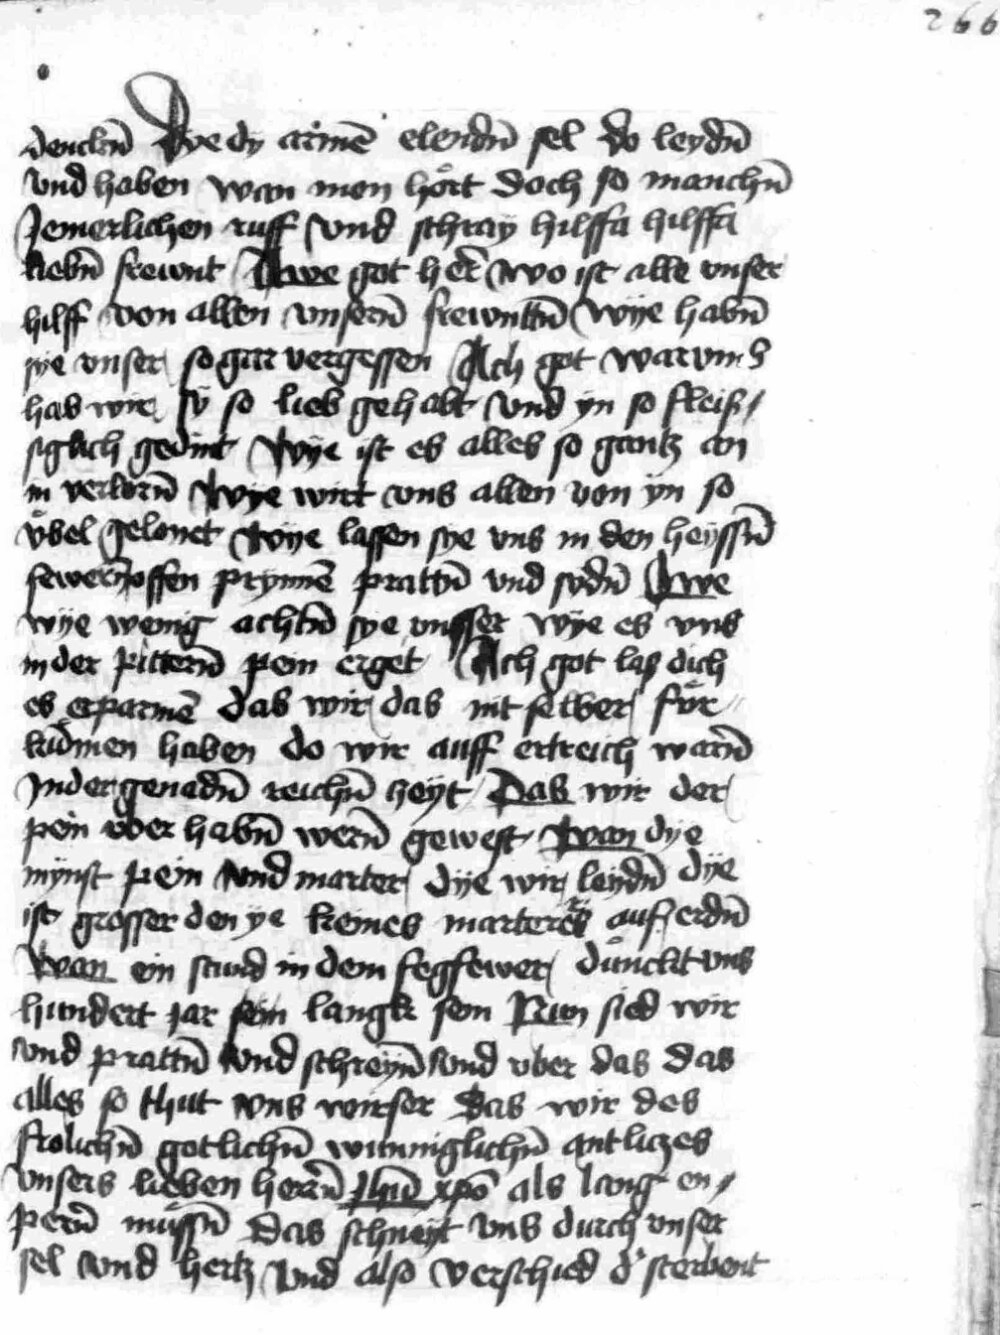 266
denckñ Wye dy armē elendñ sel do leydñ
vnd haben wan men hőrt doch so manchñ
Jemerlichen ruff vnd schray hilffa hilffa
liebñ frewnt Awe got her̃ wo ist alle vnser
hilff von allen vnserñ frewnttñ wye habñ
sye vnser so gar vergessen Ach got warvmb
hab wir sy so lieb gehabt vnd yn so fleiß/
siglich gedint Wye ist es alles so gantz an
in verlorñ Wye wirt vns allen von yn so
vbel gelonet Wye lassen sye vns in den heyssñ
fewerñoffen prynnē prattñ vnd sydñ Awe
wye wenig achtñ sye vnsser wye es vns
in der pitterñ pein erget Ach got laß dich
es erparmē das wir das nit selber für
kumen haben do wir auff ertreich warñ
In der genadñ reichñ heyt Das wir der
pein vber habñ werñ gewest wan dye
mynst pein vnd marter dye wir leydñ dye
ist grosser den ye keines marterers auf erdñ
Wan ein stund in dem fegfewer dunckt vns
hundert jar sein langk sein Nun sied wir
vnd prattñ vnd schreyñ vnd vber das das
alles so thut vns wirser das wir des
frolichñ gotlichñ winniglichñ antliczes
vnsers lieben herrñ Jhū xpō als lang en/
perñ mussñ Das schneyt vns durch vnser
sel vnd hertz vnd also verschied d' sterbent